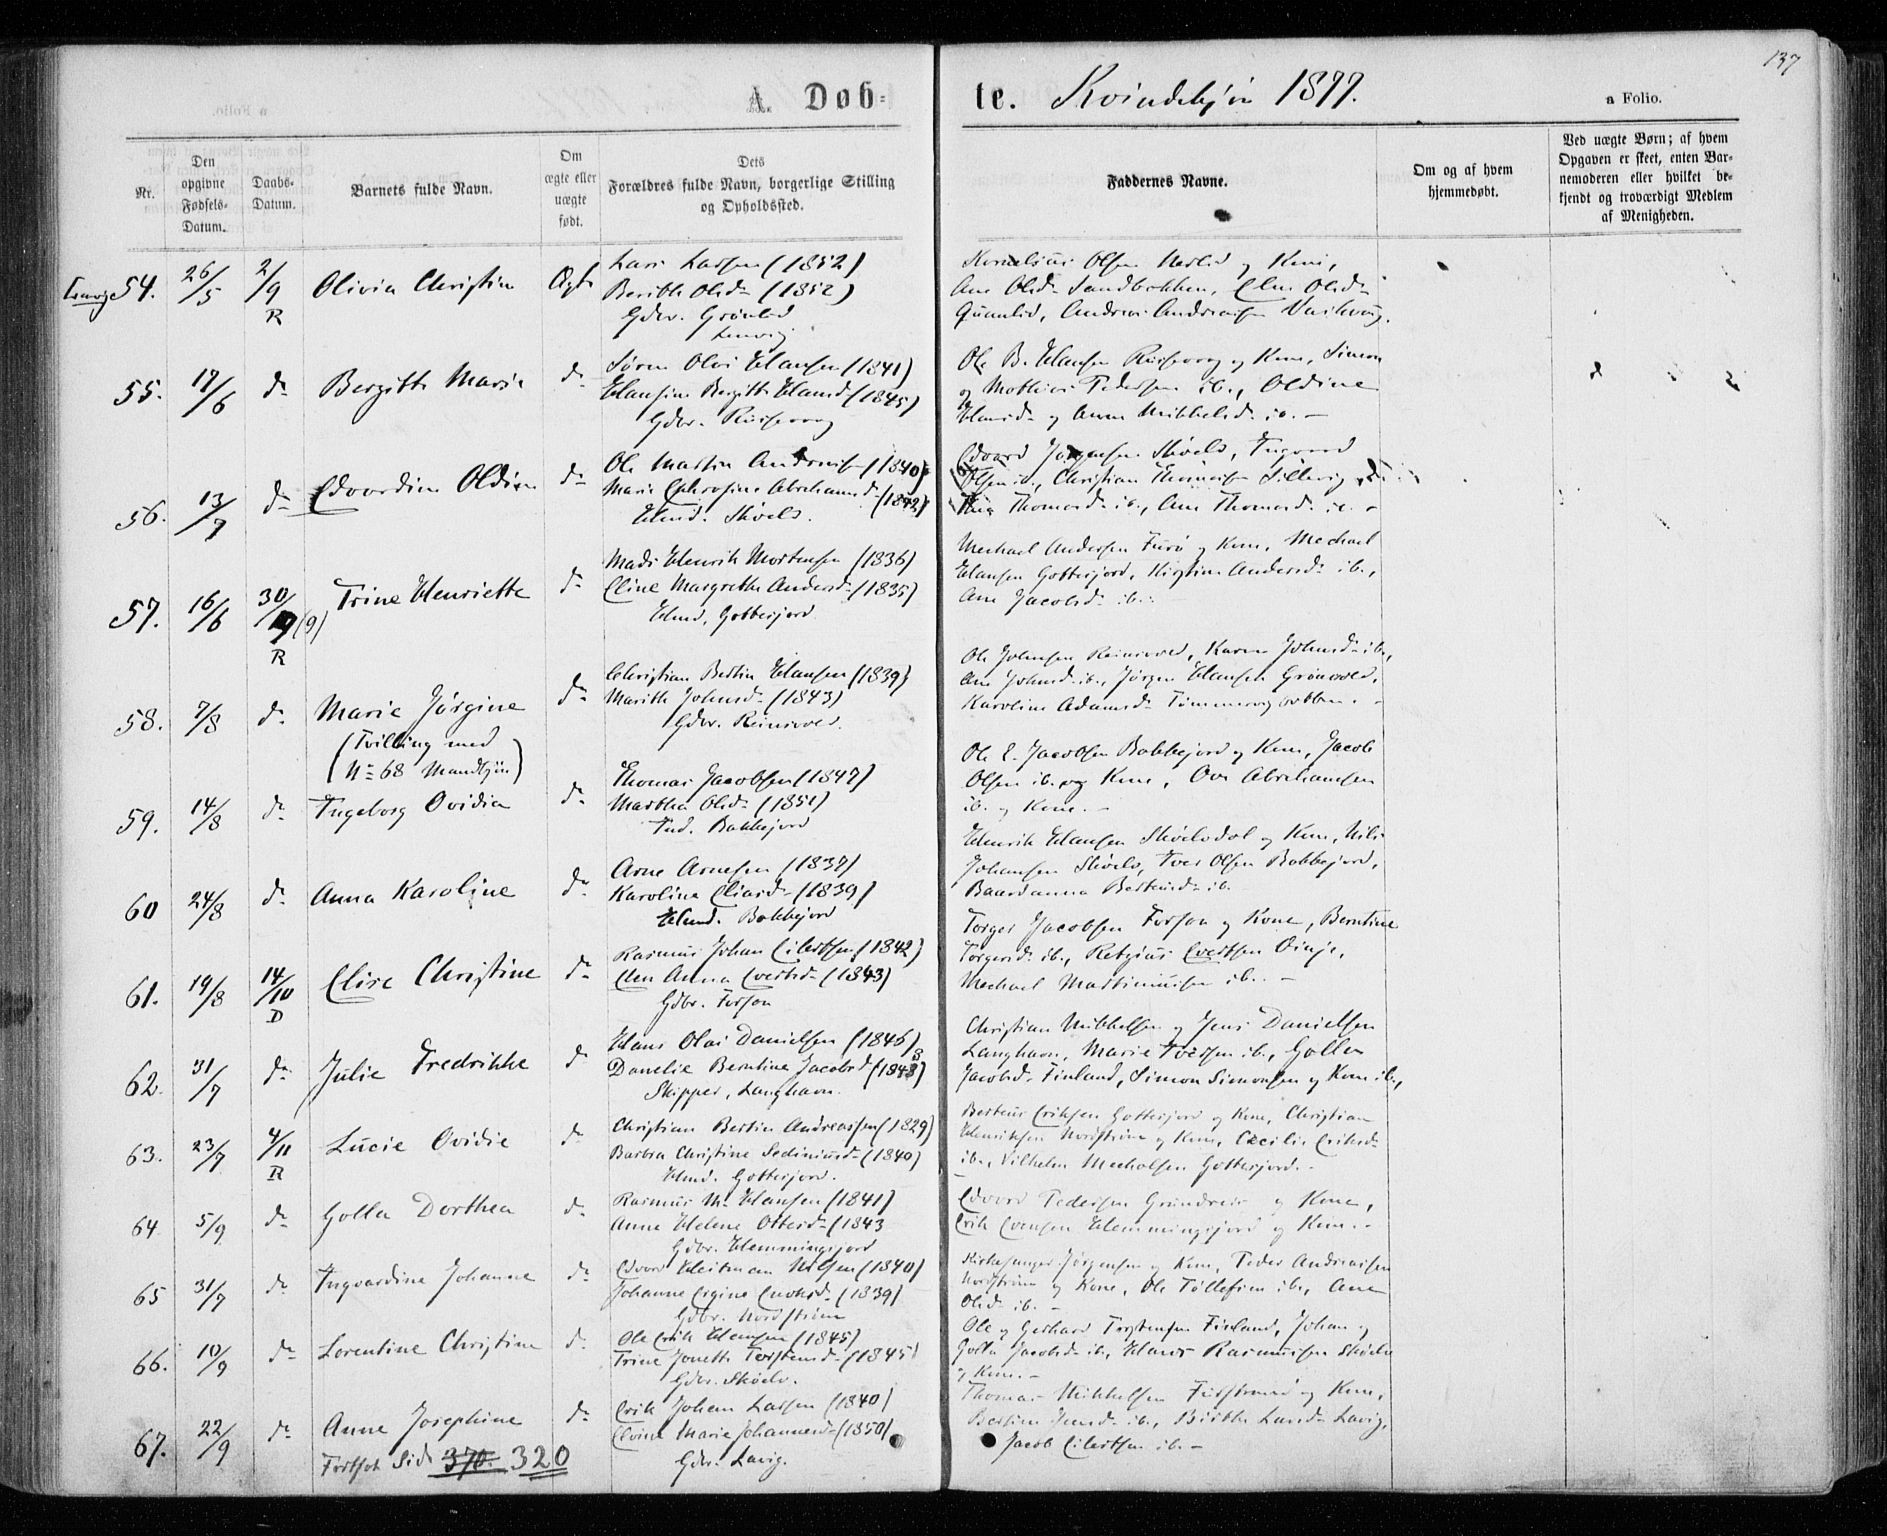 137
A. Døb-
te. Kvindekjøn 1877.
a Folio.
Nr.
Den opgivne Fødsels-Datum.
Daabs-Datum.
Barnets fulde Navn.
Om ægte eller uægte født.
Dets Forældres fulde Navn, borgerlige Stilling og Opholdssted.
Faddernes Navne.
Om og af hvem hjemmedøbt.
Ved uægte Børn; af hvem Opgaven er skeet, enten Barnemoderen eller hvilket bekjendt og troværdigt Medlem af Menigheden.
54. 26/5 2/9 R Olivia Christine Ægte
Lars Larsen (1852)
Berith Olsd. (1852)
Gdbr.
Lenvig
Kornelius Olsen og Kone,
Ane Olsd. Sandbakken, Olsd.
Andreas Andreassen
55. 17/6 do Bergitte Marie do
Søren Olai Hansen (1841)
Hansine Bergitte Hansd. (1845)
Gdbr. Russevaag
Ole B. Hansen Russevaag og Kone, Simon
og Mathias Pedersen ib., Oldine
Hansd. og Anne Mikkelsd. ib. -
56. 13/7 do Edvardine Oldine do
Ole Martin Andreassen (1840)
Marie Ephrosine Abrahamsd. (1842)
Hmd. Skøelv.
Edvard Jørgensen Skøelv, Ingvard
Olsen ib., Christian Thomassen
Thomasd. ib., Ane Thomasd. ib. -
57. 16/6 30/9 (9) R Trine Henriette do
Mads Henrik Mortensen (1836)
Eline Margrethe Andersd. (1835)
Hmd. Gottesjord
Mechael Andersen Furø og Kone, Mechael
Hansen Gottesjord, Kirstine Andersd. ib.,
Ane Jacobsd. ib. -
58. 7/8 do Marie Jørgine do
(Tvilling med
No 68 Mandkjøn)
Christian Bertin Hansen (1839)
Marith Johnsd. (1843)
Gdbr. Reinsvold.
Ole Johnsen Reinsvold, Karen Johnsd. ib.,
Ane Johnsd. ib., Jørgen Hansen Grønvold,
Karoline Adamsd. Tømmervigbotten. -
59. 14/8 do Ingeborg Ovidia do
Thomas Jacobsen (1847)
Martha Olsd. (1851)
Ind. Bakkejord
Ole E. Jacobsen Bakkejord og Kone, Jacob
Olsen ib. og Kone, Ove Abrahamsen
ib. og Kone. -
60 24/8 do Anna Karoline do
Arne Arnesen (1837)
Karoline Eliasd. (1839)
Hmd. Bakkejord
Henrik Hansen Skøelvdal og Kone, Nils
Johansen Skøelv, Iver Olsen Bakkejord,
Baardanna Berteusd. ib.
61. 19/8 14/10 D Elise Christine do
Rasmus Johan Eilertsen (1842)
Elen Anna Evertsd. (1843)
Gdbr. Forson
Torger Jacobsen Forson og Kone, Berntine
Torgersd. ib., Retzius Evertsen Øinje,
Mechael Martinussen ib. -
62. 31/7 do Julie Fredrikke do
Hans Olai Danielsen (1846)
Danelie Berntine Jacobsd. (1848)
Skipper, Langhavn.
Christian Mikkelsen og Jens Danielsen
Langhavn, Marie Iversen ib., Golla
Jacobsd. Finland, Simon Simonsen og Kone ib.,
63. 23/7 4/11 R Lucie Ovidie do
Christian Bertin Andreassen (1829)
Barbra Christine Sediniusd. (1840)
Hmd. Gottesjord.
Berteus Eriksen Gottesjord og Kone, Christian
Henriksen Nordstrøm og Kone, Cecilie Eriksd.
ib., Vilhelm Mechalsen Gottesjord. -
64 5/9 do Golla Dorthea do
Rasmus M. Hansen (1841)
Anne Helene Ottersd. (1843
Gdbr. Hemmingsjord
Edvard Pedersen Grundreis og Kone,
Erik Evensen Hemmingsjord og Kone. -
65 31/7 do Ingvardine Johanne do
Edvard Heitman Nilsen (1840)
Johanne Ergine Enoksd. (1839)
Gdbr. Nordstrøm
Kirkesanger Jørgensen og Kone, Peder Andreassen
Nordstrøm og Kone, Ole Tollefsen ib., Ane
Olsd. ib. -
66. 10/9 do Lorentine Christine do
Ole Erik Hansen (1845)
Trine Jonette Torstensd. (1845)
Gdbr. Skøelv.
Ole og Gerhard Torstensen Finland, Johan og
Golla Jacobsd. ib., Hans Rasmussen Skøelv
og Kone. -
67. 22/9 do Anne Josephine do
Erik Johan Larsen (1840)
Elvine Marie Johannesd. (1850)
Gdbr. Lavig.
Thomas Mikkelsen og Kone,
Jensd. ib., Birthe Larsd. Lavig,
Jacob Eilertsen ib. -
Fortsat Side 370. 320